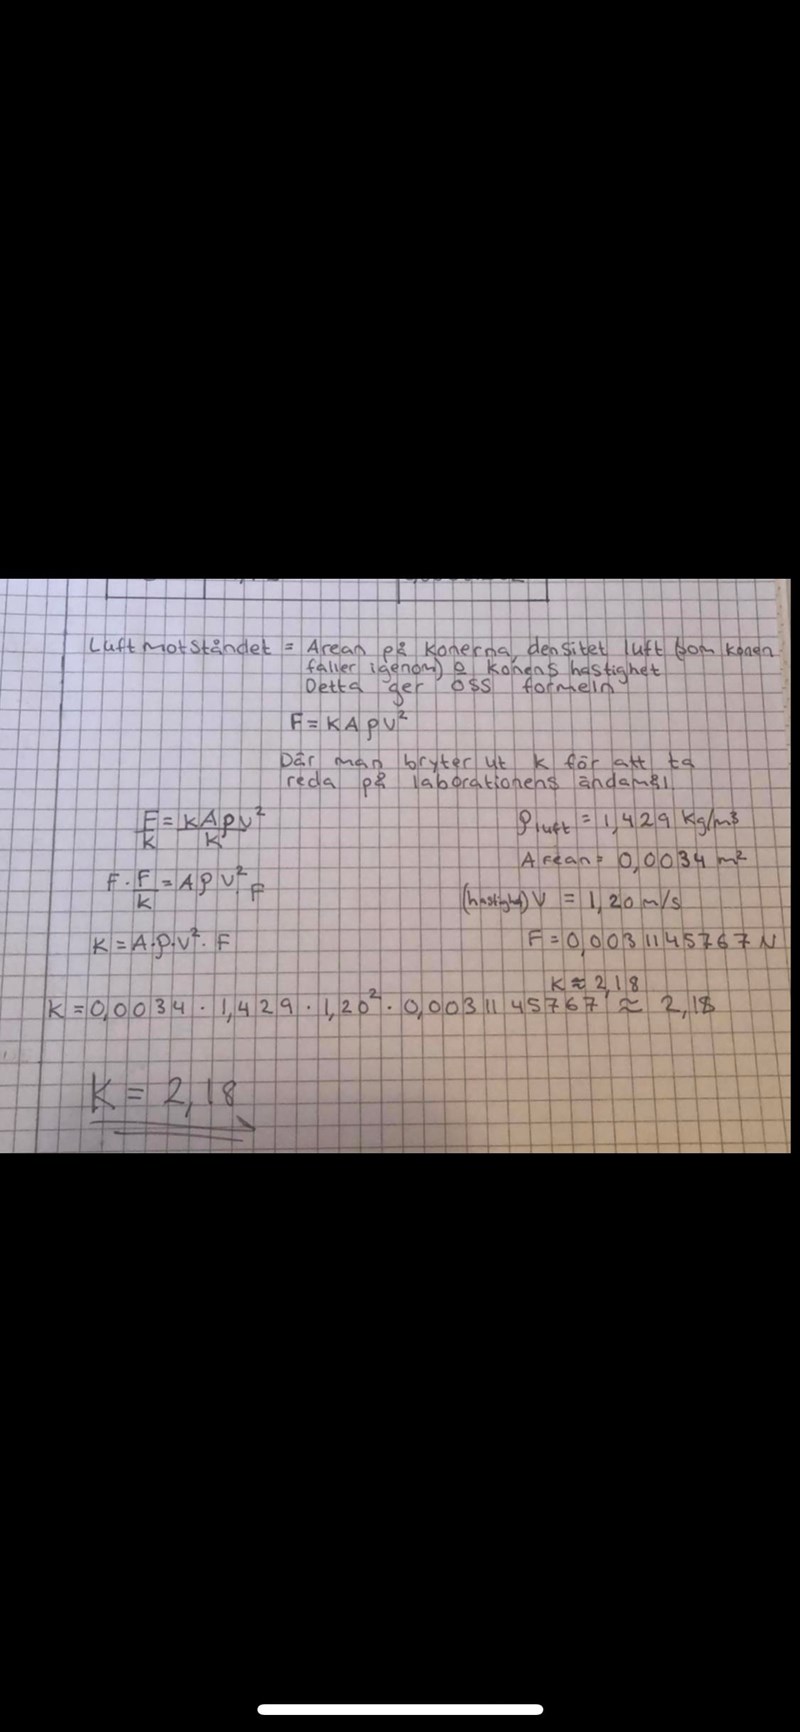 Luftmotståndet = Arean på konerna, densitet luft (som konen
faller igenom) o konens hastighet
Detta ger oss formeln
F = KAρv²
Där man bryter ut k för att ta
reda på laborationens ändamål
F/k = kAρv²/k
ρluft = 1,429 kg/m³
Arean = 0,0034 m²
F · F/k = Aρv² · F
(hastighet) V = 1,20 m/s
K = A·ρ·v² · F
F = 0,0031145767 N
K ≈ 2,18
K = 0,0034 · 1,429 · 1,20² · 0,0031145767 ≈ 2,18
K = 2,18